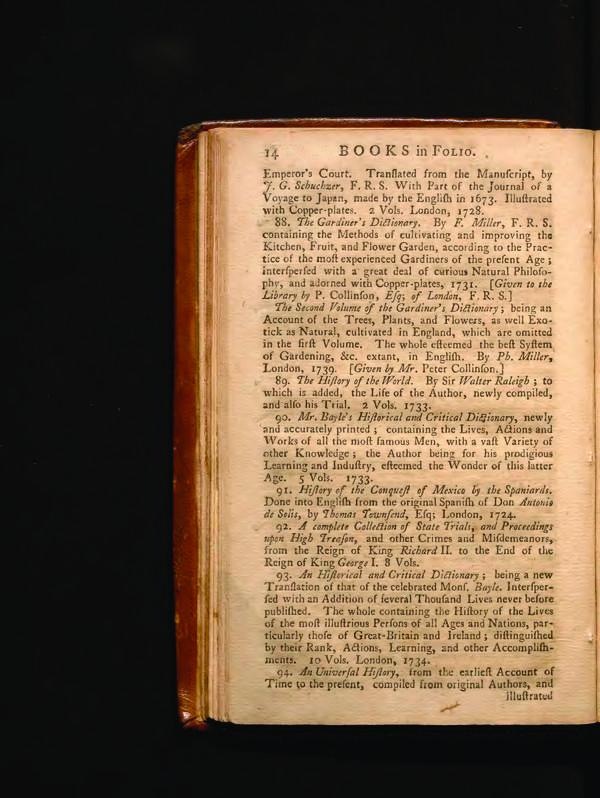 14 BOOKS in FOLIO.
Emperor's Court. Tranſlated from the Manuſcript, by
J. G. Scheuchzer, F. R. S. With Part of the Journal of a
Voyage to Japan, made by the Engliſh in 1673. Illuſtrated
with Copper-plates. 2 Vols. London, 1728.
88. The Gardiner's Dictionary. By F. Miller, F. R. S.
containing the Methods of cultivating and improving the
Kitchen, Fruit, and Flower Garden, according to the Prac-
tice of the moſt experienced Gardiners of the preſent Age;
interſperſed with a great deal of curious Natural Philoſo-
phy, and adorned with Copper-plates, 1731. [Given to the
Library by P. Collinſon, Eſq; of London, F. R. S.]
The Second Volume of the Gardiner's Dictionary; being an
Account of the Trees, Plants, and Flowers, as well Exo-
tick as Natural, cultivated in England, which are omitted
in the firſt Volume. The whole eſteemed the beſt Syſtem
of Gardening, &c. extant, in Engliſh. By Ph. Miller,
London, 1739. [Given by Mr. Peter Collinſon.]
89. The Hiſtory of the World. By Sir Walter Raleigh; to
which is added, the Life of the Author, newly compiled,
and alſo his Trial. 2 Vols. 1733.
90. Mr. Bayle's Hiſtorical and Critical Dictionary, newly
and accurately printed; containing the Lives, Actions and
Works of all the moſt famous Men, with a vaſt Variety of
other Knowledge; the Author being for his prodigious
Learning and Induſtry, eſteemed the Wonder of this latter
Age. 5 Vols. 1733.
91. Hiſtory of the Conqueſt of Mexico by the Spaniards.
Done into Engliſh from the original Spaniſh of Don Antonio
de Solis, by Thomas Townſend, Eſq; London, 1724.
92. A complete Collection of State Trials, and Proceedings
upon High Treaſon, and other Crimes and Miſdemeanors,
from the Reign of King Richard II. to the End of the
Reign of King George I. 8 Vols.
93. An Hiſtorical and Critical Dictionary; being a new
Tranſlation of that of the celebrated Monſ. Bayle. Interſper-
ſed with an Addition of ſeveral Thouſand Lives never before
publiſhed. The whole containing the Hiſtory of the Lives
of the moſt illuſtrious Perſons of all Ages and Nations, par-
ticularly thoſe of Great-Britain and Ireland; diſtinguiſhed
by their Rank, Actions, Learning, and other Accompliſh-
ments. 10 Vols. London, 1734.
94. An Univerſal Hiſtory, from the earlieſt Account of
Time to the preſent, compiled from original Authors, and
illuſtrated